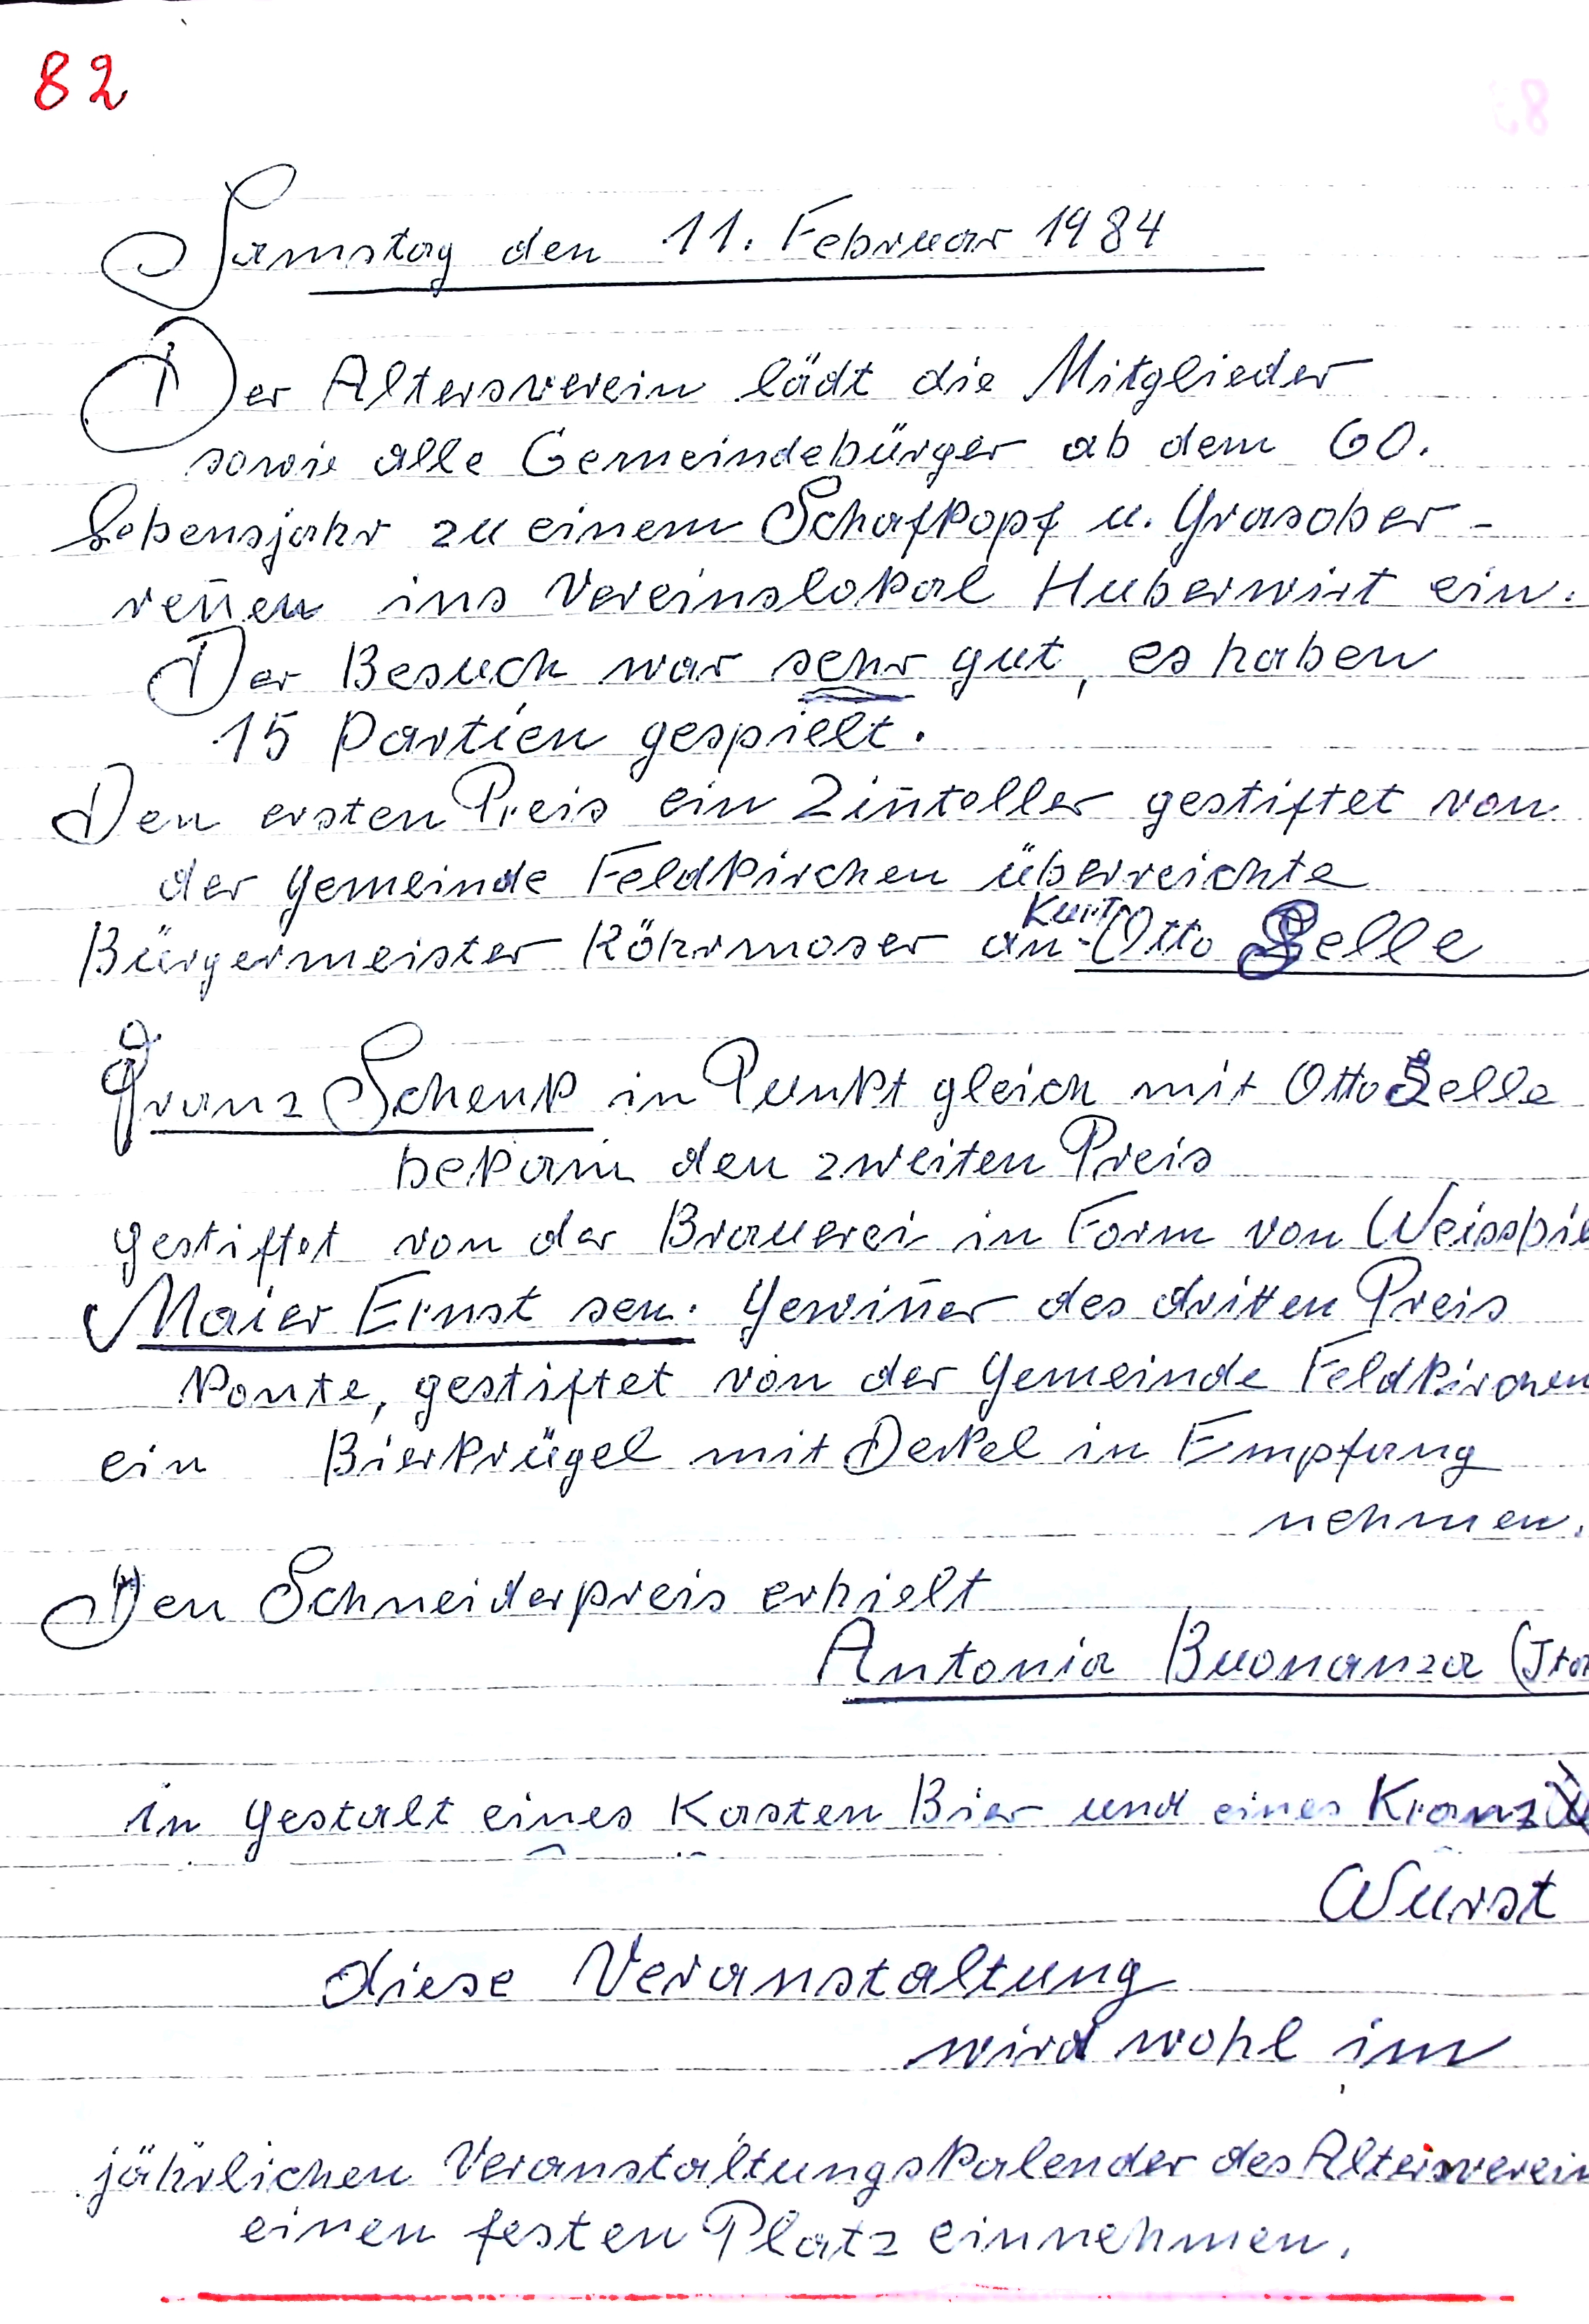 82
Samstag den 11. Februar 1984
Der Altersverein lädt die Mitglieder
sowie alle Gemeindebürger ab dem 60.
Lebensjahr zu einem Schafkopf u. Grasober-
ren̄en ins Vereinslokal Huberwirt ein.
Der Besuch war sehr gut, es haben
15 Partien gespielt.
Den ersten Preis ein Zin̄teller gestiftet von
der Gemeinde Feldkirchen überreichte
Kurt
Bürgermeister Röhrmoser an Otto Selle
Franz Schenk in Punkt gleich mit Otto Selle
bekam̄ den zweiten Preis
gestiftet von der Brauerei in Form von Weissbie
Maier Ernst sen. Gewin̄er des dritten Preis
konte, gestiftet von der Gemeinde Feldkirchen
ein Bierkrügel mit Deckel in Empfang
nehmen.
Den Schneiderpreis erhielt
Antonia Buonanza (Ita
in Gestalt eines Kasten Bier und eines Kranz
Wurst
diese Veranstaltung
wird wohl im
jährlichen Veranstaltungskalender des Altersverein
einen festen Platz einnehmen.